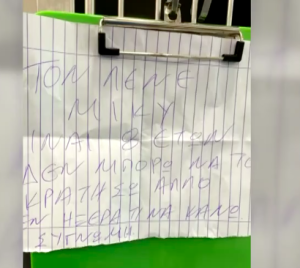 ΤΟΝ ΛΕΝΕ
ΜΙΚΥ
ΙΝΑΙ 8 ΕΤΩΝ
ΔΕΝ ΜΠΟΡΩ ΝΑ ΤΟ
ΚΡΑΤΗΣΩ ΑΛΛΟ
ΕΝ ΗΞΕΡΑ ΤΙ ΝΑ ΚΑΝΩ
ΣΥΓΝΩΜΗ